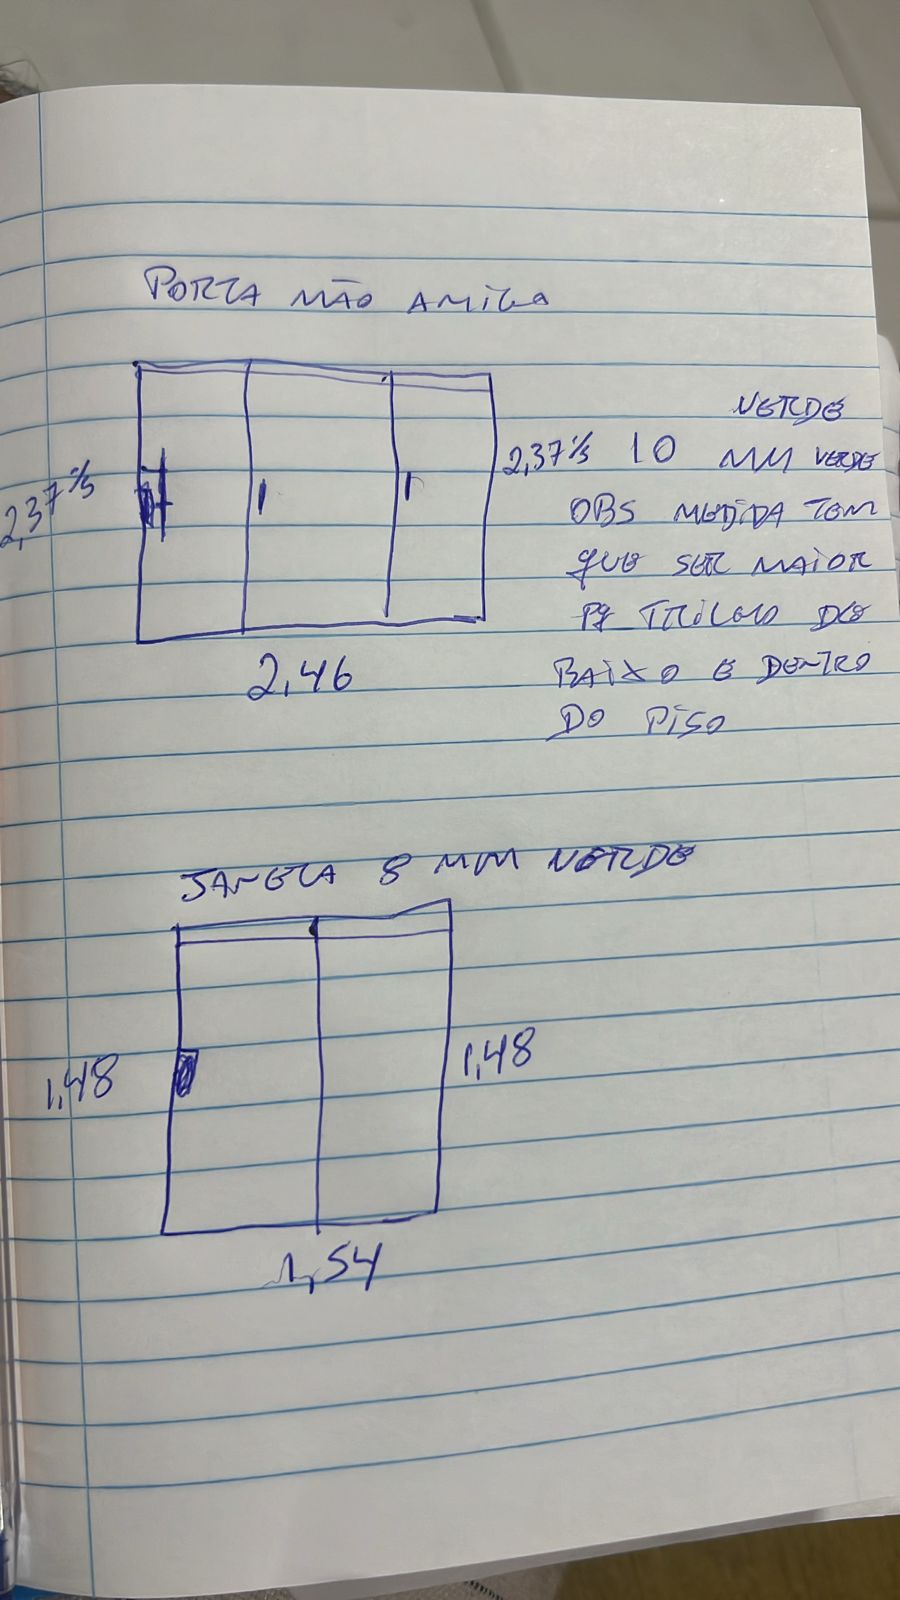 PORTA MÃO AMIGA
VERDE
2,37 2,37 10 MM VERDE
OBS MEDIDA TEM
QUE SER MAIOR
PQ TRILHO DE
BAIXO E DENTRO
DO PISO
2,46
JANELA 8 MM VERDE
1,48 1,48
1,54